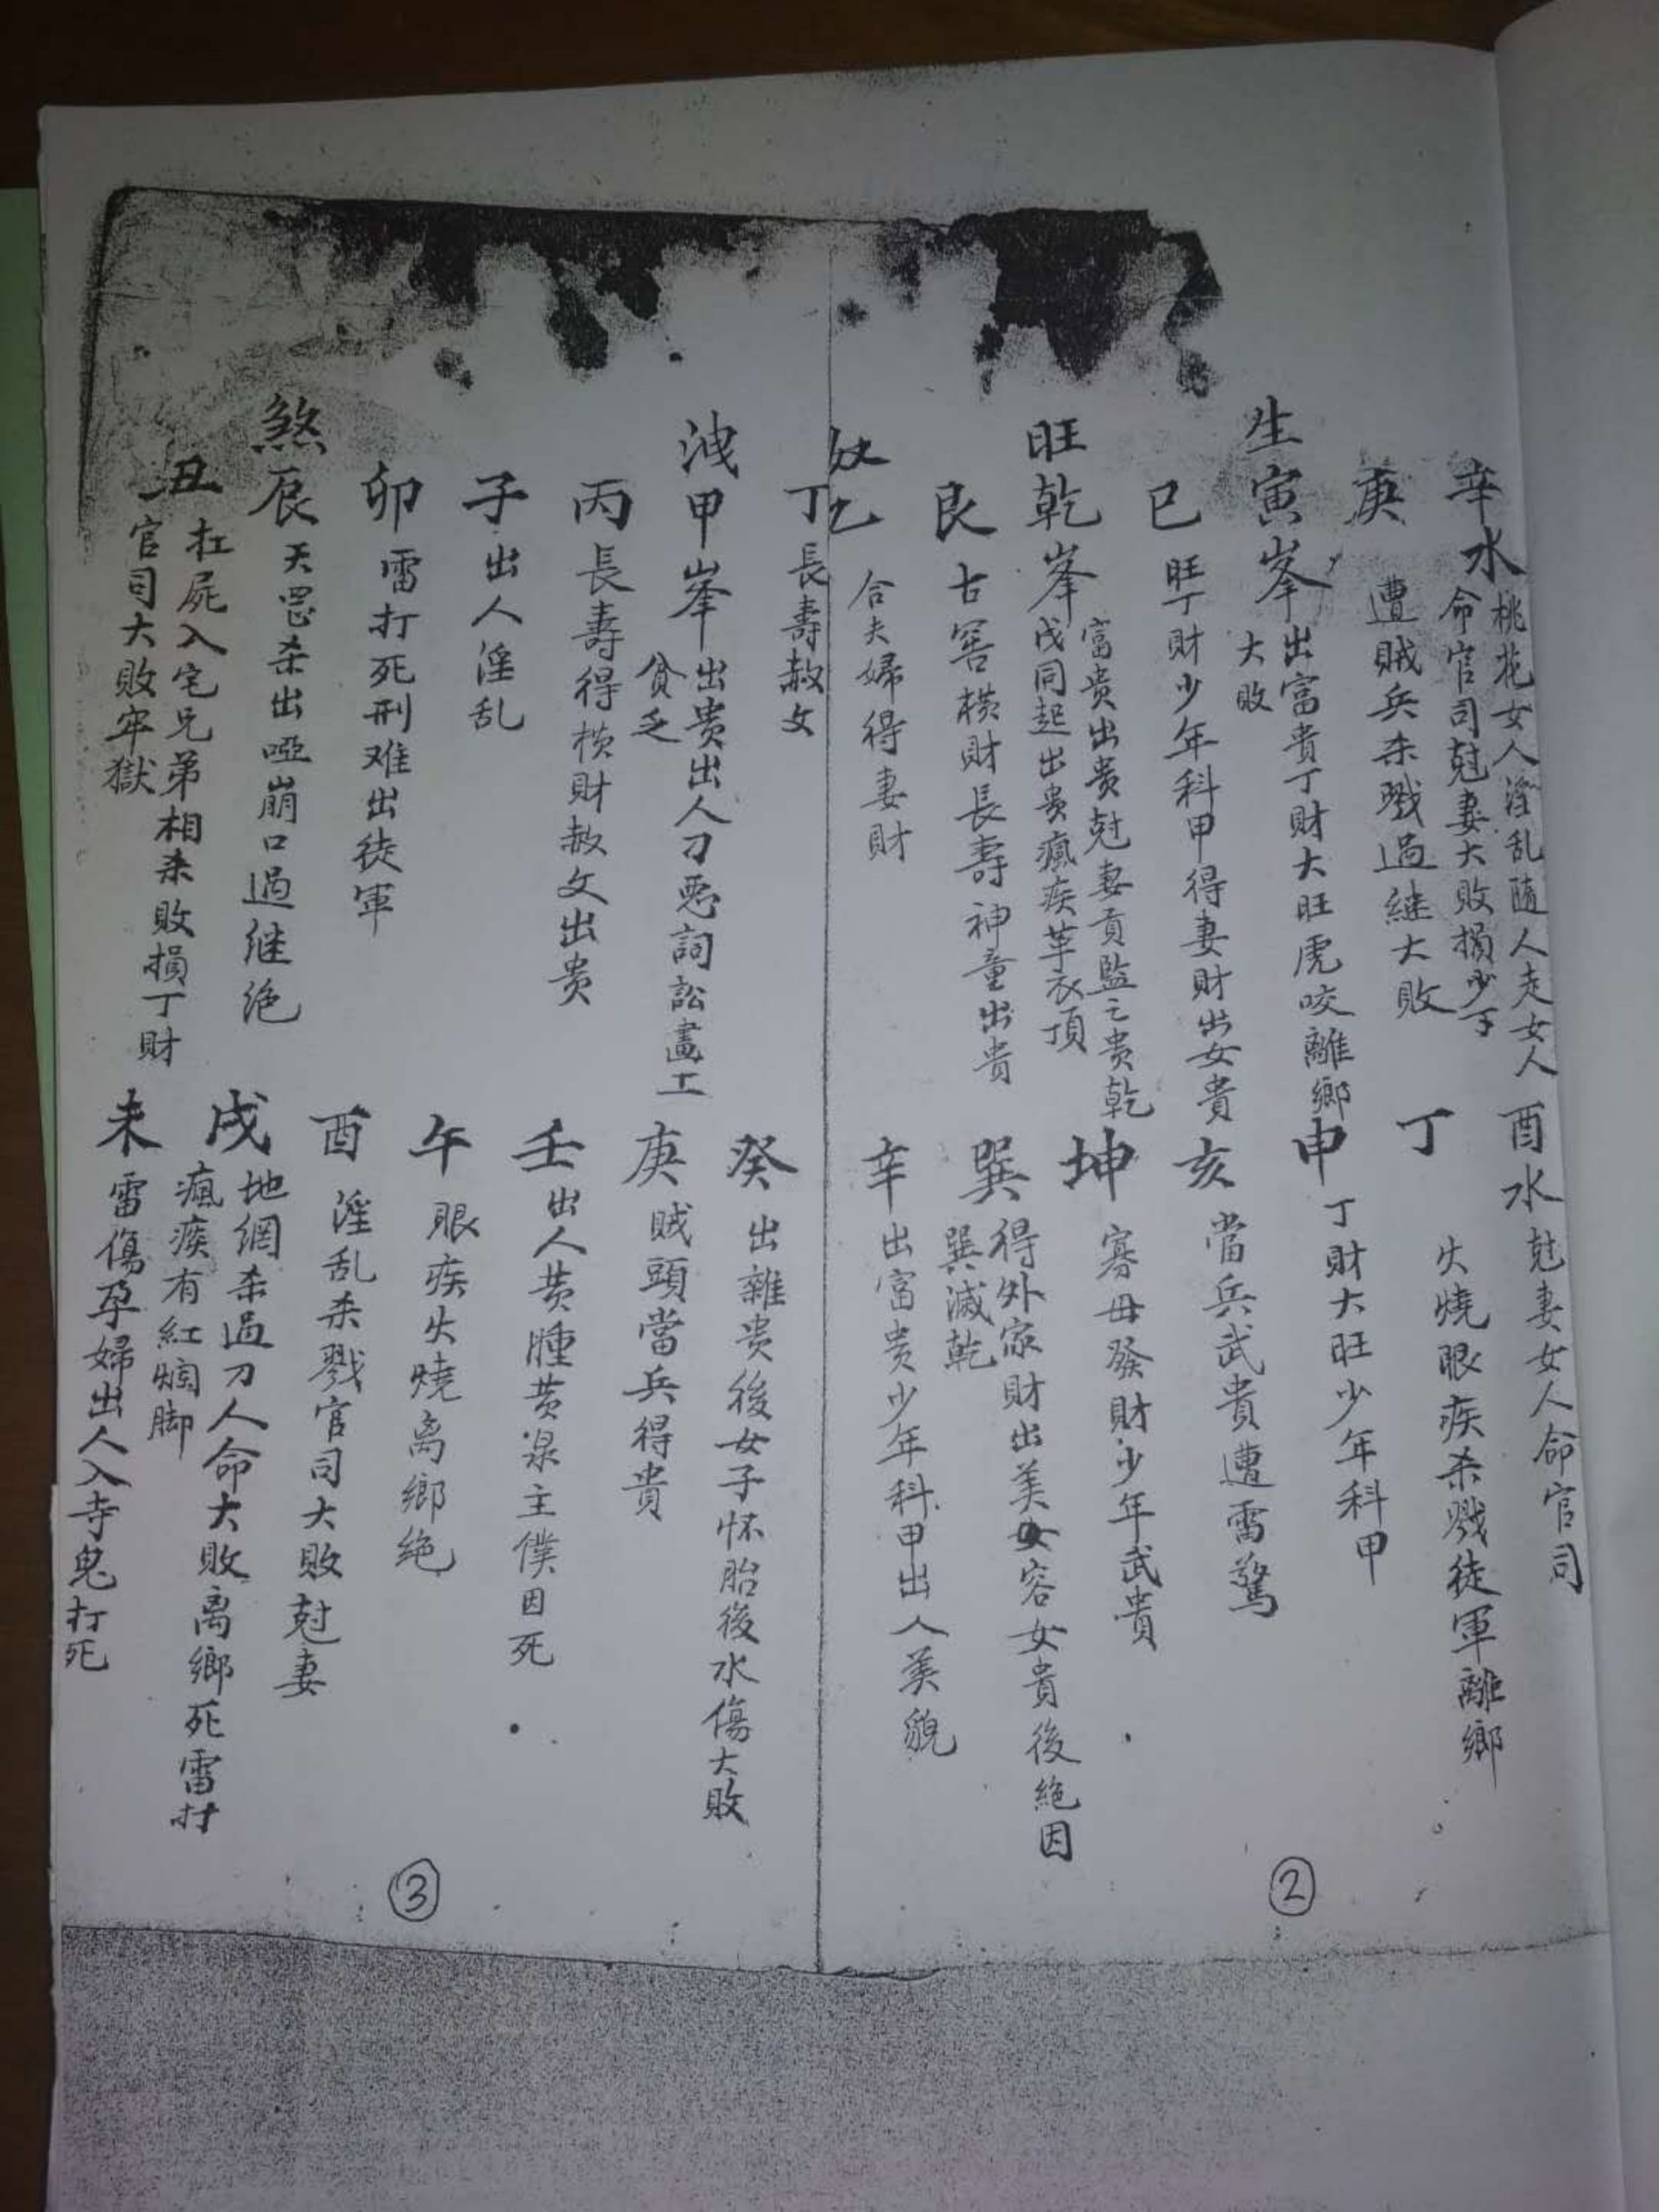 辛水桃花女人淫乱隨人走女人
命官司尅妻大敗損少丁
庚 遭賊兵杀戮过继大敗
生寅峯出富貴丁財大旺虎咬離鄉
大敗
巳 旺丁財少年科甲得妻財出女貴
旺乾峯富贵出贵尅妻貢監之贵乾
戌同起出贵瘋疾革衣頂
艮 古窖横財長壽神童出貴
奴乙 合夫婦得妻財
酉水尅妻女人命官司
丁 火燒眼疾杀戮徒軍離鄉
申 丁財大旺少年科甲
亥 當兵武貴遭雷驚
坤 寡母發財少年武貴
巽得外家財出美女容女貴後絕因
巽滅乾
辛 出富贵少年科甲出人美貌
②
丁 長壽赦女
洩甲峯出贵出人刁恶詞訟畫工
貧乏
丙 長壽得横財赦文出贵
子 出人淫乱
卯 雷打死刑难出徒軍
煞辰天罡杀出啞崩口过继绝
丑 扛屍入宅兄弟相杀敗損丁財
官司大敗牢獄
癸 出雜贵後女子怀胎後水傷大敗
庚 賊頭當兵得貴
壬 出人黄腫黄泉主僕因死
午 眼疾火燒离鄉绝
酉 淫乱杀戮官司大敗尅妻
戌地網杀过刀人命大敗离鄉死雷打
瘋疾有紅焗脚
未 雷傷孕婦出人入寺鬼打死
③